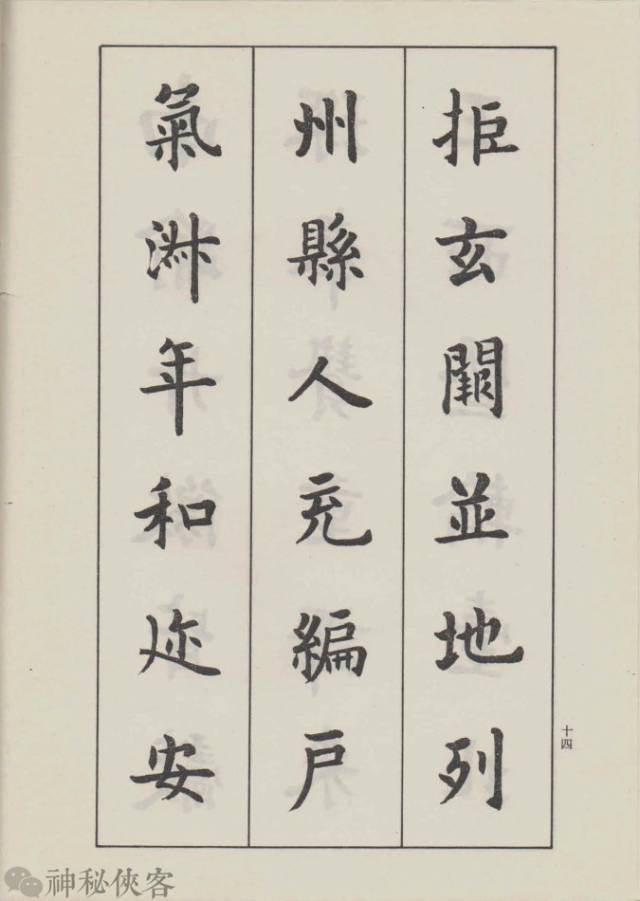 拒玄闕並地列
州縣人充編戶
氣淑年和迩安
十四
神秘俠客